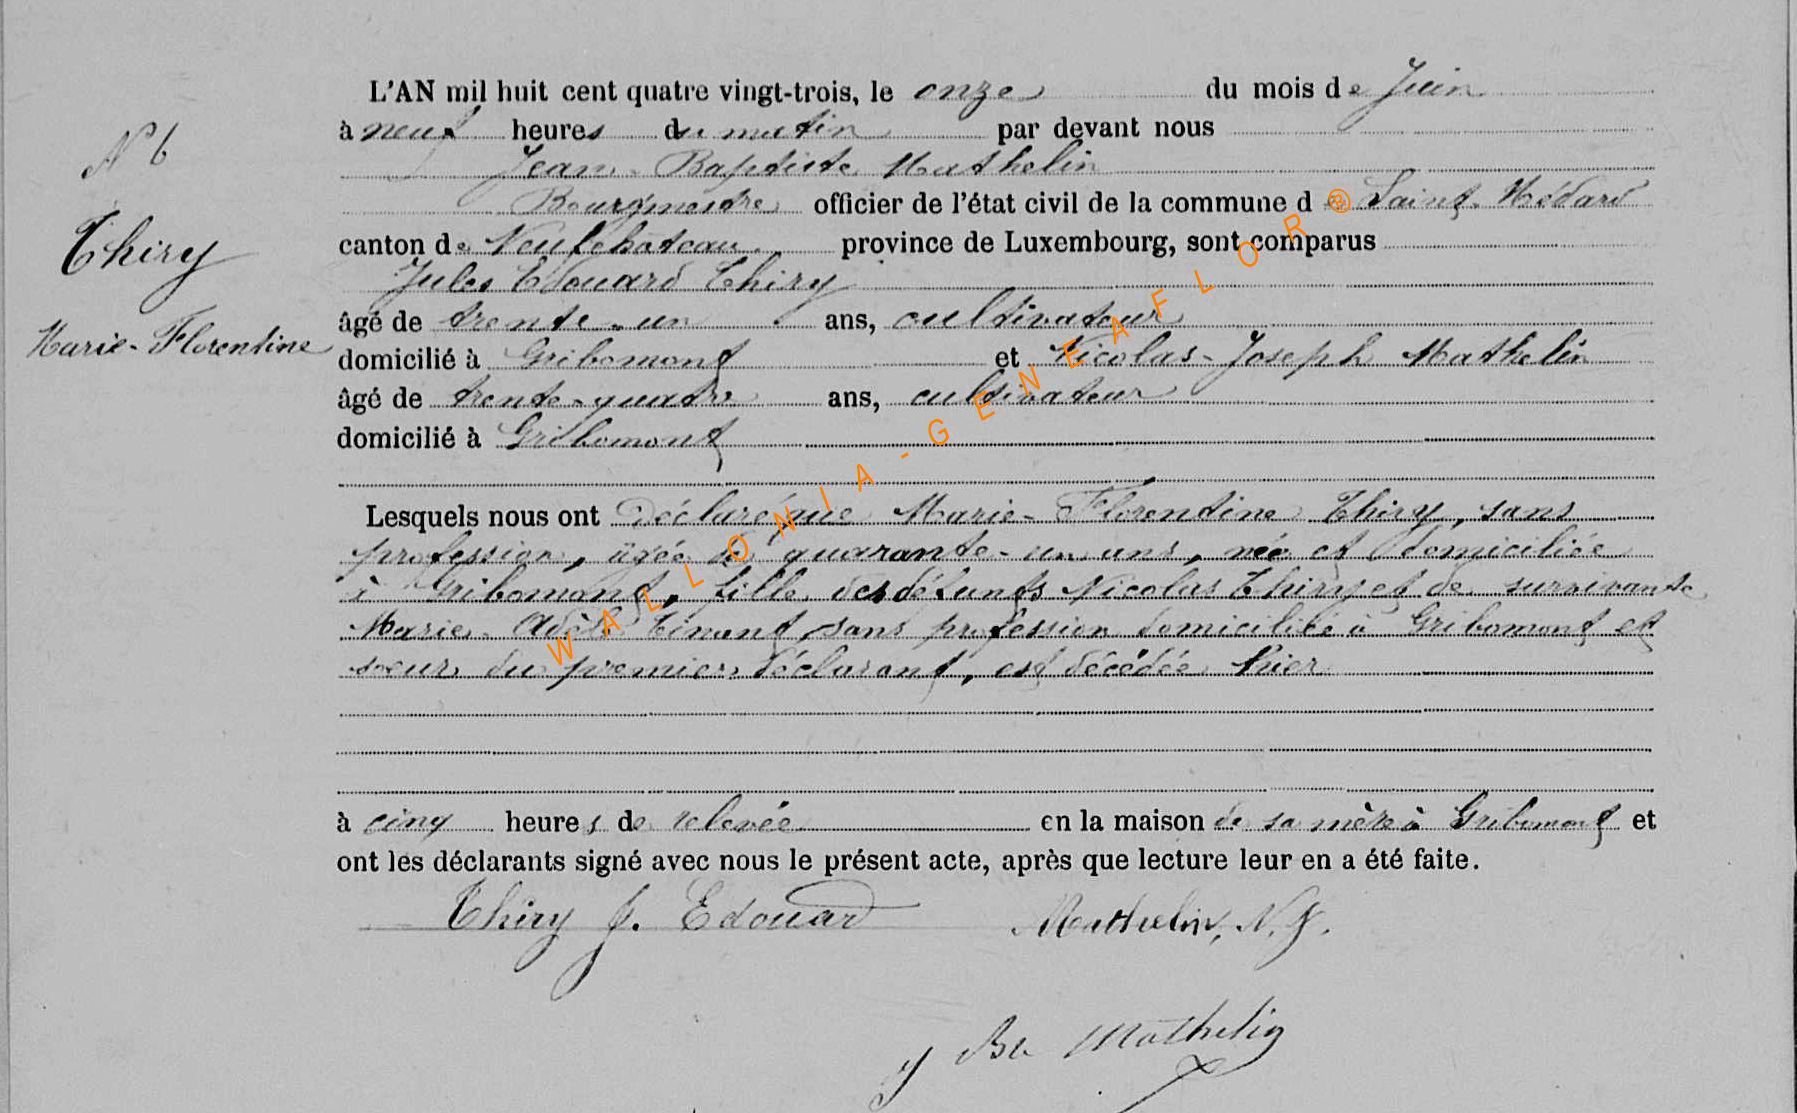 L'AN mil huit cent quatre vingt-trois, le onze du mois de Juin
à neuf heures du matin par devant nous
Jean-Baptiste Mathelin
Bourgmestre officier de l'état civil de la commune de Saint-Médard
canton de Neufchateau province de Luxembourg, sont comparus
Jules Edouard Thiry
âgé de trente-un ans, cultivateur
domicilié à Gribomont et Nicolas-Joseph Mathelin
âgé de trente-quatre ans, cultivateur
domicilié à Gribomont
Lesquels nous ont déclaré que Marie-Florentine Thiry, sans
profession, âgée de quarante-un ans, née et domiciliée
à Gribomont, fille des défunts Nicolas Thiry et de survivante
Marie-Adèle Tinant, sans profession domiciliée à Gribomont et
soeur du premier déclarant, est décédée hier
à cinq heures de relevée en la maison de sa mère à Gribomont et
ont les déclarants signé avec nous le présent acte, après que lecture leur en a été faite.
Thiry J. Edouard Mathelin, N. J.
J Bte Mathelin
N 6
Thiry
Marie-Florentine
WALLONIA-GENEAFLOR®